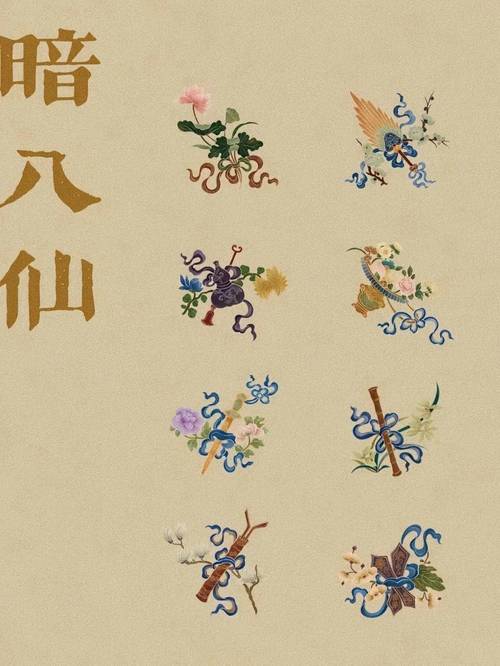 暗八仙